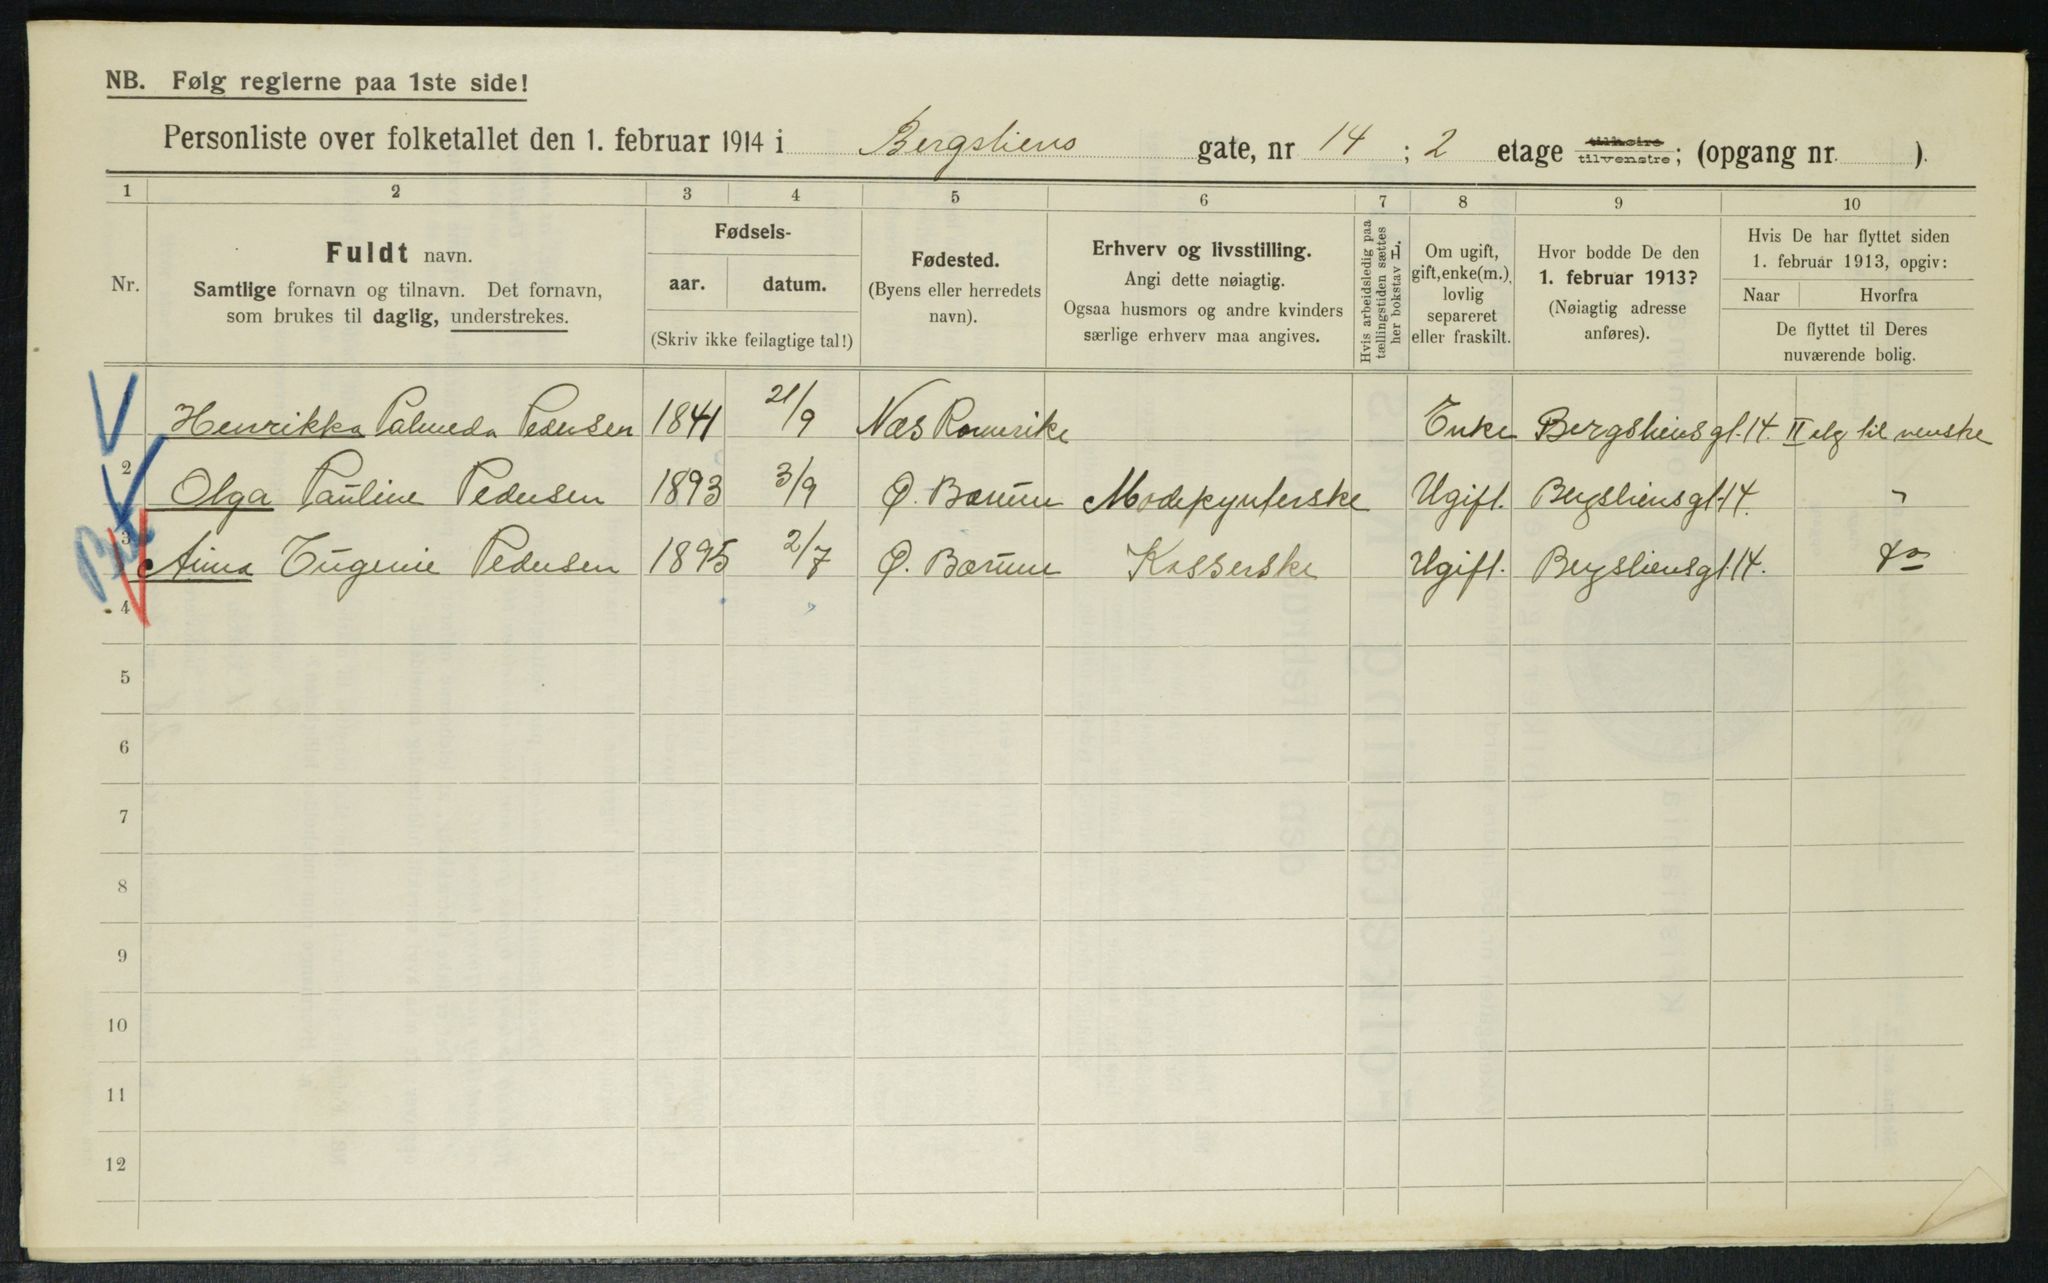 NB. Følg reglerne paa 1ste side!
Personliste over folketallet den 1. februar 1914 i Bergsliens gate, nr 14 ; 2 etage tilhøire tilvenstre; (opgang nr. ).
1 2 3 4 5 6 7 8 9 10
Nr.
Fuldt navn.
Samtlige fornavn og tilnavn. Det fornavn,
som brukes til daglig, understrekes.
Fødsels-
aar. datum.
(Skriv ikke feilagtige tal!)
Fødested.
(Byens eller herredets
navn).
Erhverv og livsstilling.
Angi dette nøiagtig.
Ogsaa husmors og andre kvinders
særlige erhverv maa angives.
Hvis arbeidsledig paa
tællingstiden sættes
her bokstav L.
Om ugift,
gift, enke(m.),
lovlig
separeret
eller fraskilt.
Hvor bodde De den
1. februar 1913?
(Nøiagtig adresse
anføres).
Hvis De har flyttet siden
1. februar 1913, opgiv:
Naar Hvorfra
De flyttet til Deres
nuværende bolig.
Henrikka Palmeda Pedersen 1841 21/9 Næs Romerike Enke Bergsliensgt. 14. II etg til venske
2 Olga Pauline Pedersen 1893 3/9 Ø. Bærum Modepynterske Ugift. Bergsliensgt. 14. "
3 Anna Eugenie Pedersen 1895 2/7 Ø. Bærum Kasserske Ugift. Bergsliensgt 14. do
4
5
6
7
8
9
10
11
12